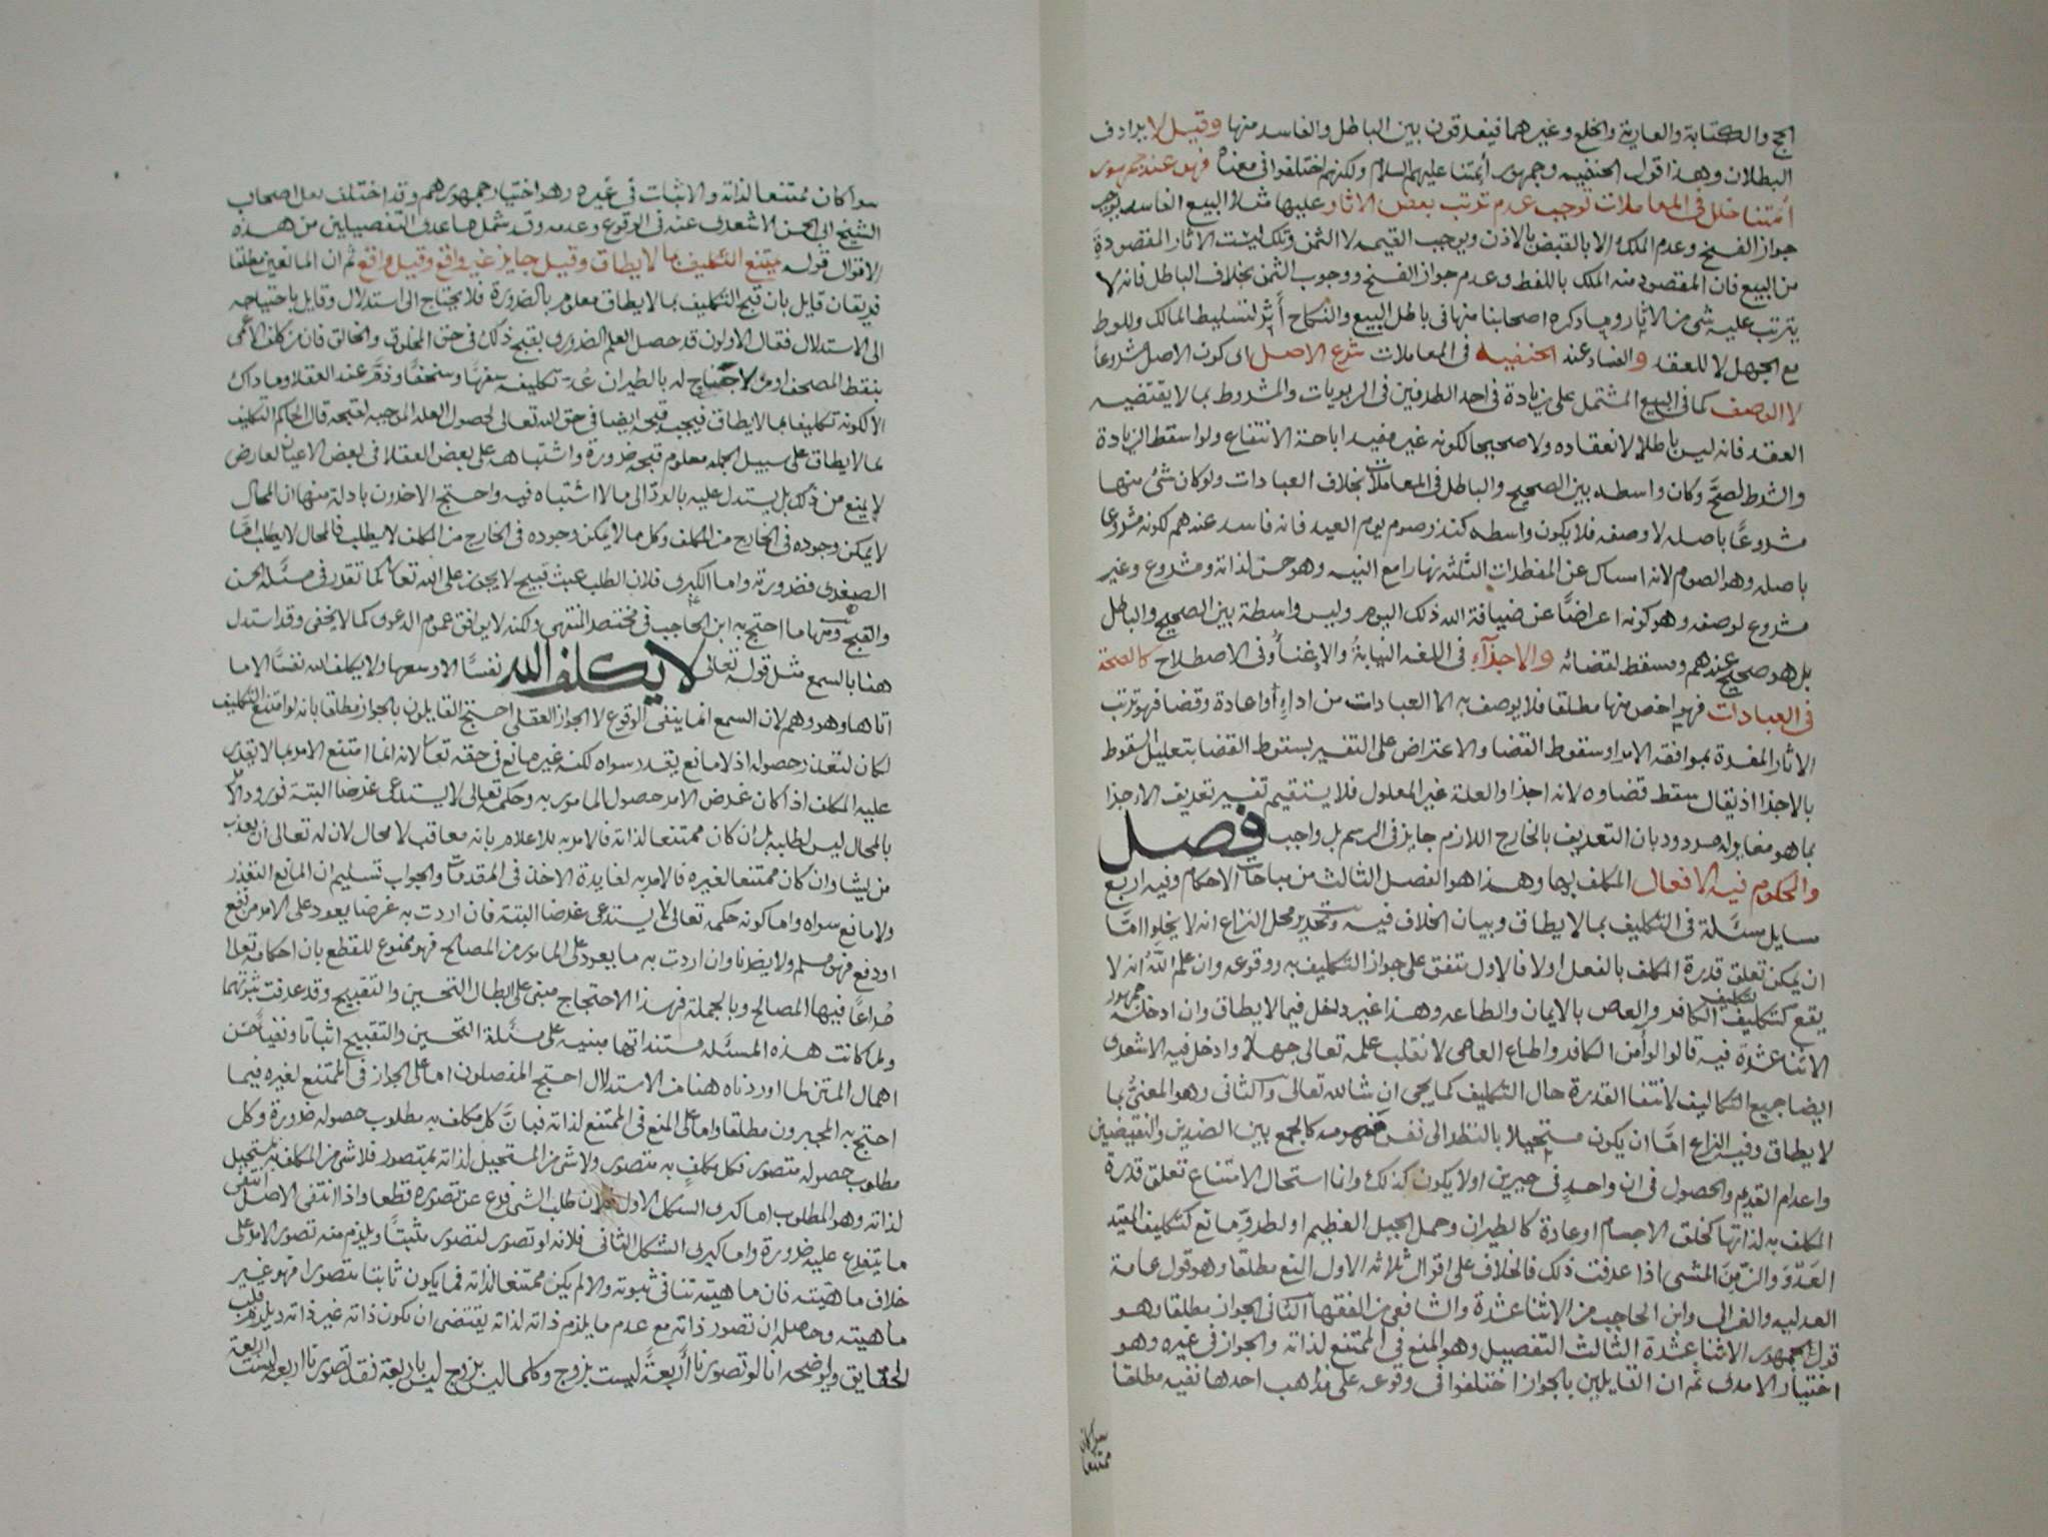 الحج والكتابة والعارية والخلع وغيرهما فيفرقون بين الباطل والفاسد منها وقيل لا يرادف
البطلان وهذا قول الحنفيه وجمهور أئمتنا عليهم السلام ولكنهم اختلفوا في معناه فهو عند جمهور
أئمتنا خلل في المعاملات توجب عدم ترتب بعض الاثار عليها مثلا البيع الفاسد يوجب
جواز الفسخ وعدم الملك الا بالقبض بالاذن ويوجب القيمه لا الثمن وتلك ليست الاثار المقصودة
من البيع فان المقصود منه الملك باللفظ وعدم جواز الفسخ ووجوب الثمن بخلاف الباطل فانه لا
يترتب عليه شي من الاثار وما ذكره اصحابنا منها في باطل البيع والنكاح أثر لتسليط المالك وللوط
مع الجهل لا للعقد والفساد عند الحنفيه في المعاملات شرع الاصل اي كون الاصل مشروعا
لا الوصف كما في البيع المشتمل على زيادة في احد الطرفين في الربويات والمشروط بما لا يقتضيه
العقد فانه ليس باطلا لانعقاده ولا صحيحا لكونه غير مفيد اباحة الانتفاع ولو اسقط الزيادة
والشرط لصح وكان واسطه بين الصحيح والباطل في المعاملات بخلاف العبادات ولو كان شئ منها
مشروعًا باصله لا وصفه فلا يكون واسطه كنذر صوم يوم العيد فانه فاسد عندهم لكونه مشروعا
باصله وهو الصوم لانه امساك عن المفطرات الثلثه نهارا مع النيه وهو حسن لذاته ومشروع وغير
مشروع لوصفه وهو كونه اعراضًا عن ضيافة الله ذلك اليوم وليس واسطة بين الصحيح والباطل
بل هو صحيح عندهم ومسقط لقضائه والاجزآء في اللغه النيابة والاغنأ وفي الاصطلاح كالصحة
في العبادات فهو اخص منها مطلقا فلا يوصف به الا العبادات من اداء أو اعادة وقضا فهو ترتب
الاثار المفسرة بموافقه الامر او سقوط القضا والاعتراض على التفسير بسقوط القضا بتعليل السقوط
بالاجزا اذ يقال سقط قضاوه لانه اجزا والعلة غير المعلول فلا يستقيم تفسير تعريف الاجزا
بما هو مغاير له مردود بان التعريف بالخارج اللازم جايز في الرسم بل واجب فصل
والمحكوم فيه الافعال المكلف بها وهذا هو الفصل الثالث من مباحث الاحكام وفيه اربع
مسايل مسئلة في التكليف بما لا يطاق وبيان الخلاف فيه وتحرير محل النزاع انه لا يخلوا امّا
ان يمكن تعلق قدرة المكلف بالفعل اولا فالاول متفق على جواز التكليف به ووقوعه وان علم الله انه لا
يقع كتكليف الكافر والعاصي بالايمان والطاعه وهذا غير داخل فيما لا يطاق وان ادخله جمهور
الاشاعشرة فيه قالوا لو آمن الكافر واطاع العاصي لانقلب علمه تعالى جهلا وادخل فيه الاشعري
ايضا جميع التكاليف لانتفا القدرة حال التكليف كما يجي ان شا الله تعالى والثاني وهو المعنيُّ بما
لا يطاق وفيه النزاع امّا ان يكون مستحيلا بالنظر الى نفس مفهومه كالجمع بين الضدين والنقيضين
واعدام القديم والحصول في ان واحدٍ في حيزين اولا يكون كذلك وانما استحال لامتناع تعلق قدرة
المكلف به لذاتها كخلق الاجسام او عادة كالطيران وحمل الجبل العظيم او لطروّ مانع كتكليف المقيد
العدْوَ والزَّمِنَ المشي اذا عرفت ذلك فالخلاف على اقوال ثلاثه الاول المنع مطلقا وهو قول عامة
العدليه والغزالي وابن الحاجب من الاشاعشرة والشافعي من الفقهآ الثاني الجواز مطلقا وهو
قول الجمهور الاشاعشرة الثالث التفصيل وهو المنع في الممتنع لذاته والجواز في غيره وهو
اختيار الامدي ثم ان القايلين بالجواز اختلفوا في وقوعه على مذاهب احدها نفيه مطلقا
سوا كان
ممتنعا
سوا كان ممتنعا لذاته والاثبات في غيره وهو اختيار جمهورهم وقد اختلف نقل اصحاب
الشيخ ابي الحسن الاشعري عنه في الوقوع وعدمه وقد شمل ما عدى التفصيلين من هذه
الاقوال قوله يمتنع التكليف بما لا يطاق وقيل جايز غير واقع وقيل واقع ثم ان المانعين مطلقا
فريقان قايل بان قبح التكليف بما لا يطاق معلوم بالضرورة فلا يحتاج الى استدلال وقايل باحتياجه
الى الاستدلال فقال الاولون قد حصل العلم الضروري بقبح ذلك في حق المخلوق والخالق فان من كلف الاعمى
بنقط المصحف او من لا جناح له بالطيران عُدّ تكليفه سفهًا وسخفًا وذم عند العقلا وما ذاك
الا لكونه تكليفا بما لا يطاق فيجب قبحه ايضا في حق الله تعالى لحصول العله الموجبه لقبحه قال الحاكم التكليف
بما لا يطاق على سبيل الجمله معلوم قبحه ضرورة واشتباهه على بعض العقلا في بعض الاعيان لعارض
لا يمنع من ذلك بل يستدل عليه بالردّ الى ما لا اشتباه فيه واحتج الاخرون بادلة منها ان المحال
لا يمكن وجوده في الخارج من المكلف وكل ما لا يمكن وجوده في الخارج من المكلف لا يطلب فالمحال لا يطلب امّا
الصغرى فضرورية واما الكبرى فلان الطلب عبث قبيح لا يجوز على الله تعالى كما تقدر في مسئلة الحسن
والقبح ومنها ما احتج به ابن الحاجب في مختصر المنتهى ولكنه لا يوافق عموم الدعوى كما لا يخفى وقد استدل
هنا بالسمع مثل قوله تعالى لا يكلف الله نفسًا الا وسعها ولا يكلف الله نفسًا الا ما
اتاها وهو وهم لان السمع انما ينفي الوقوع لا الجواز العقلي احتج القايلون بالجواز مطلقا بانه لو امتنع التكليف
لكان لتعذر حصوله اذ لا مانع يقدر سواه لكنه غير مانع في حقه تعالى لانه انما امتنع الامر بما لا يقدر
عليه المكلف اذا كان غرض الامر حصول المامور به وحكمه تعالى لا يستدعي غرضا البتة فورود الامر
بالمحال ليس لطلبه بل ان كان ممتنعا لذاته فالامر به للاعلام بانه معاقب لا محال لان له تعالى ان يعذب
من يشا وان كان ممتنعا لغيره فالامر به لفايدة الاخذ في المقدمات والجواب تسليم ان المانع التعذر
ولا مانع سواه واما كونه حكمه تعالى لا يستدعي غرضا البتة فان اردت به غرضا يعود على الامر من نفع
او دفع فهو مسلم ولا يضرنا وان اردت به ما يعود على المامور من المصالح فهو ممنوع للقطع بان احكامه تعالى
مُراعًا فيها المصالح وبالجملة فهذا الاحتجاج مبني على ابطال التحسين والتقبيح وقد عرفت ثبوتهما
ولما كانت هذه المسئله مستنداتها مبنيه على مسئلة التحسين والتقبيح اثباتا ونفيا حَسُن
اهمال المتن لما اوردناه هنا من الاستدلال احتج المفصلون اما على الجواز في الممتنع لغيره فبما
احتج به المجبرون مطلقا واما على المنع في الممتنع لذاته فبانّ كل مكلف به مطلوب حصوله ضرورة وكل
مطلوب حصوله متصور فكل مكلفٍ به متصور ولا شي من المستحيل لذاته بمتصور فلا شي من المكلف به بمستحيل
لذاته وهو المطلوب اما كبرى الشكل الاول فلان طلب الشي فرع عن تصوره قطعا واذا انتفى الاصل انتفى
ما يتفرع عليه ضرورة واما كبرى الشكل الثاني فلانه لو تصور لتصور مثبتًا ويلزم منه تصور الامر على
خلاف ماهيته فان ماهيته تنافي ثبوته والا لم يكن ممتنعا لذاته فما يكون ثابتا متصورا فهو غير
ماهيته وحاصله ان تصور ذاته مع عدم ما يلزم ذاته لذاته يقتضي ان يكون ذاته غير ذاته ويلزم قلب
الحقايق ويوضحه انا لو تصورنا أربعةً ليست بزوج وكلما ليس بزوج ليس باربعة فقد تصورنا اربعة ليست اربعة